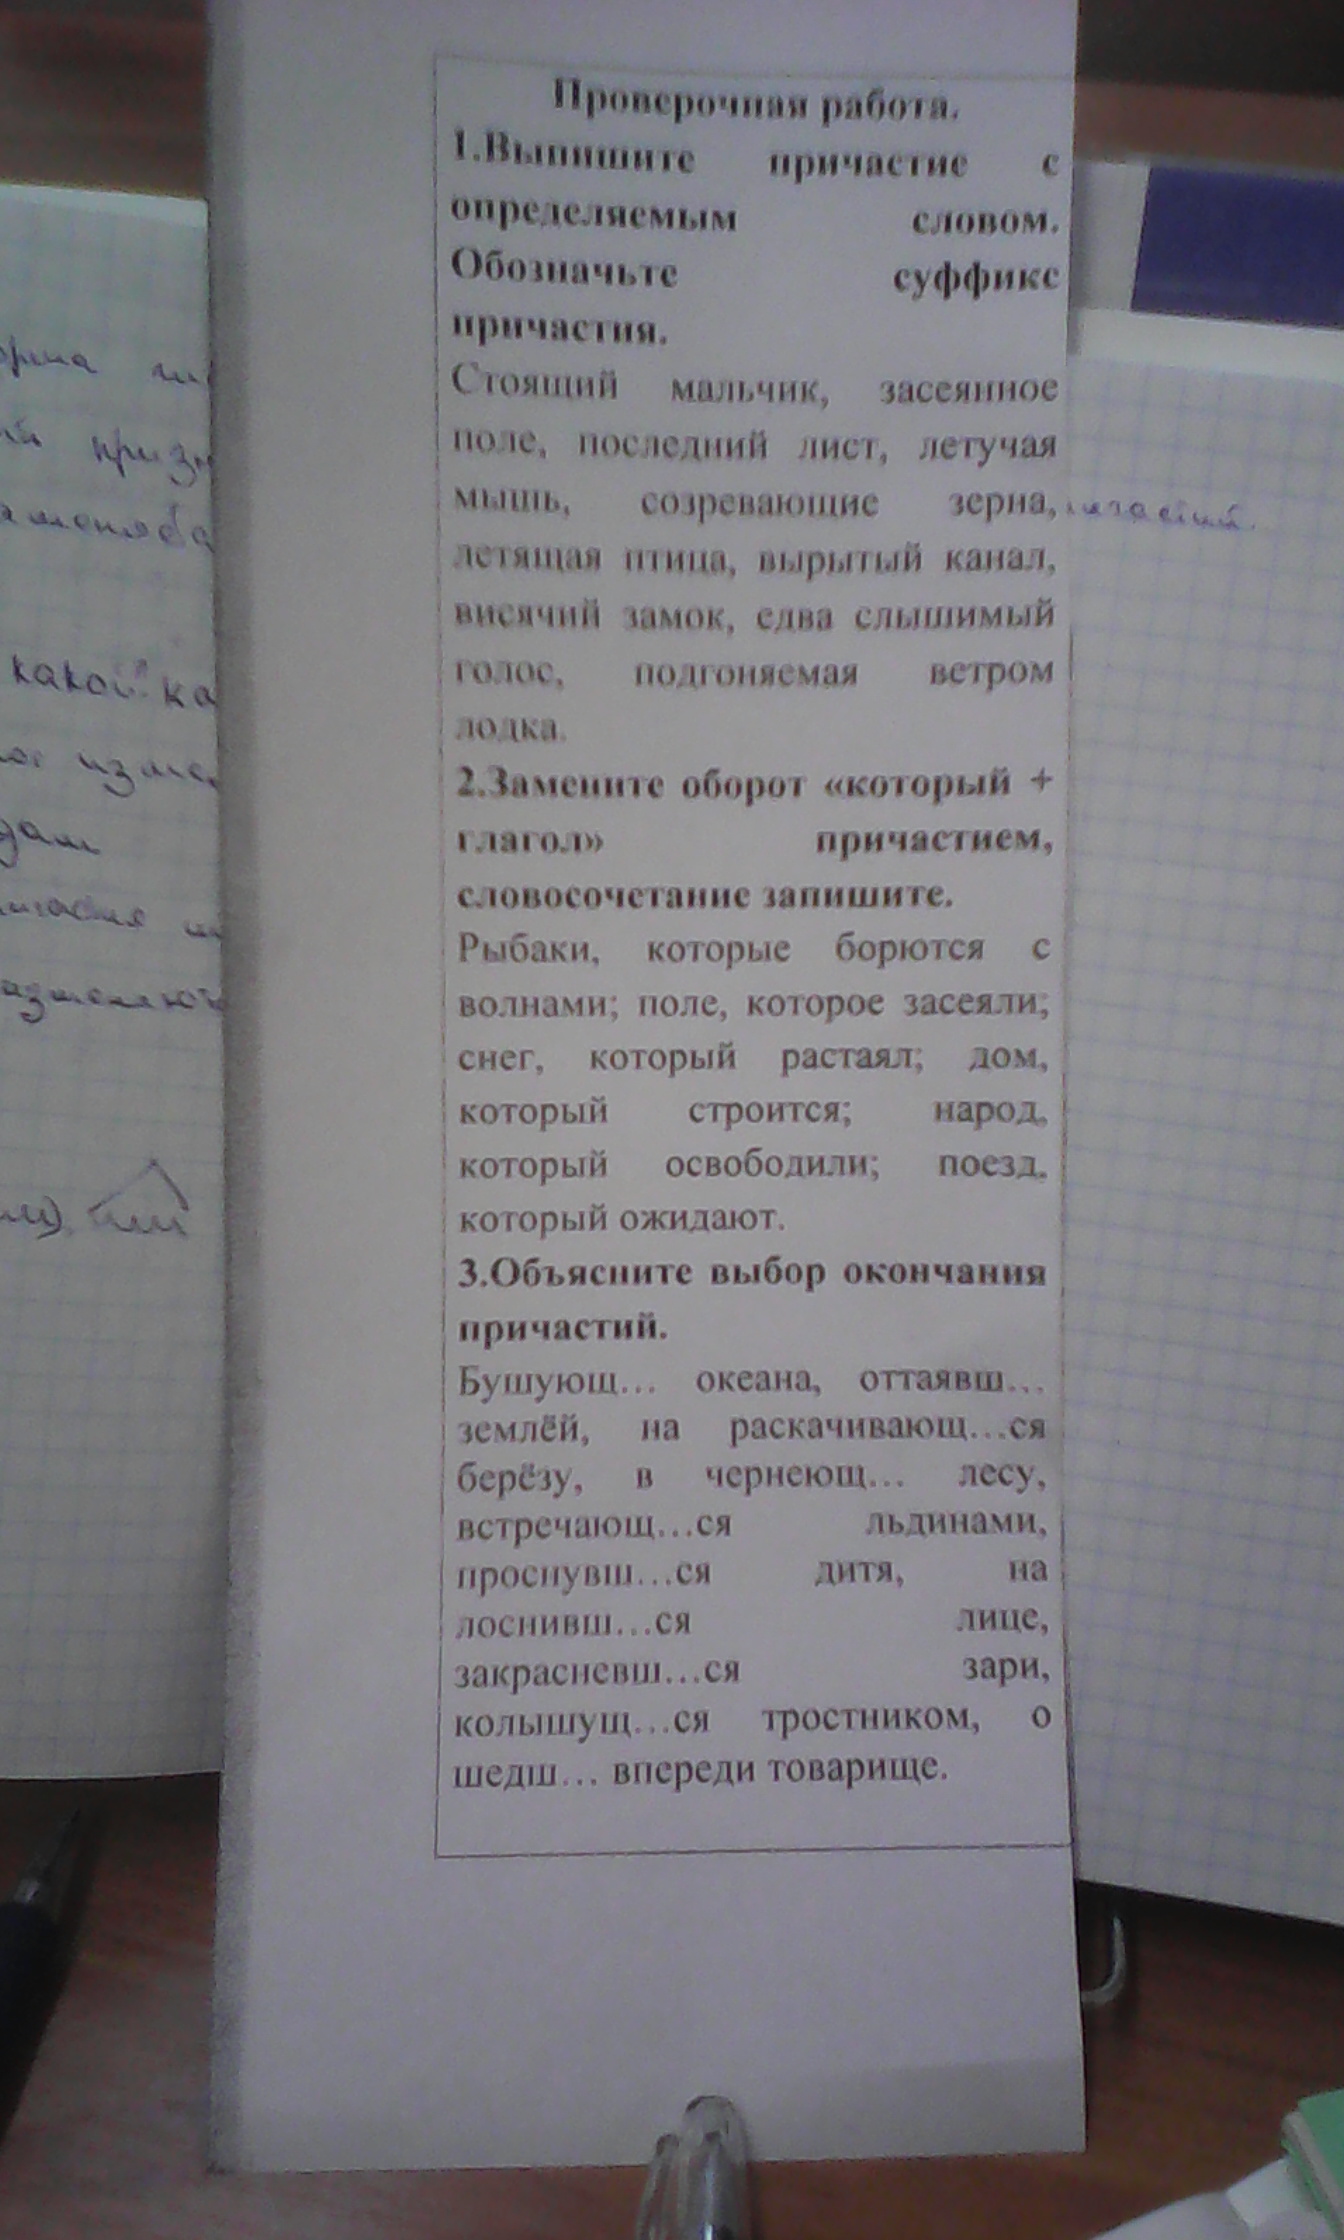 Проверочная работа.
1.Выпишите причастие с
определяемым словом.
Обозначьте суффикс
причастия.
Стоящий мальчик, засеянное
поле, последний лист, летучая
мышь, созревающие зерна,
летящая птица, вырытый канал,
висячий замок, едва слышимый
голос, подгоняемая ветром
лодка.
2.Замените оборот «который +
глагол» причастием,
словосочетание запишите.
Рыбаки, которые борются с
волнами; поле, которое засеяли;
снег, который растаял; дом,
который строится; народ,
который освободили; поезд,
который ожидают.
3.Объясните выбор окончания
причастий.
Бушующ… океана, оттаявш…
землёй, на раскачивающ…ся
берёзу, в чернеющ… лесу,
встречающ…ся льдинами,
проснувш…ся дитя, на
лоснивш…ся лице,
закрасневш…ся зари,
колышущ…ся тростником, о
шедш… впереди товарище.
какой